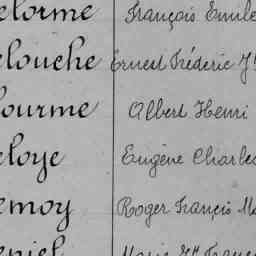 elorme François Emile
elouche Ernest Fréderic J
ourme Albert Henri
eloye Eugène Charles
emoy Roger François Ma
eniel Marie